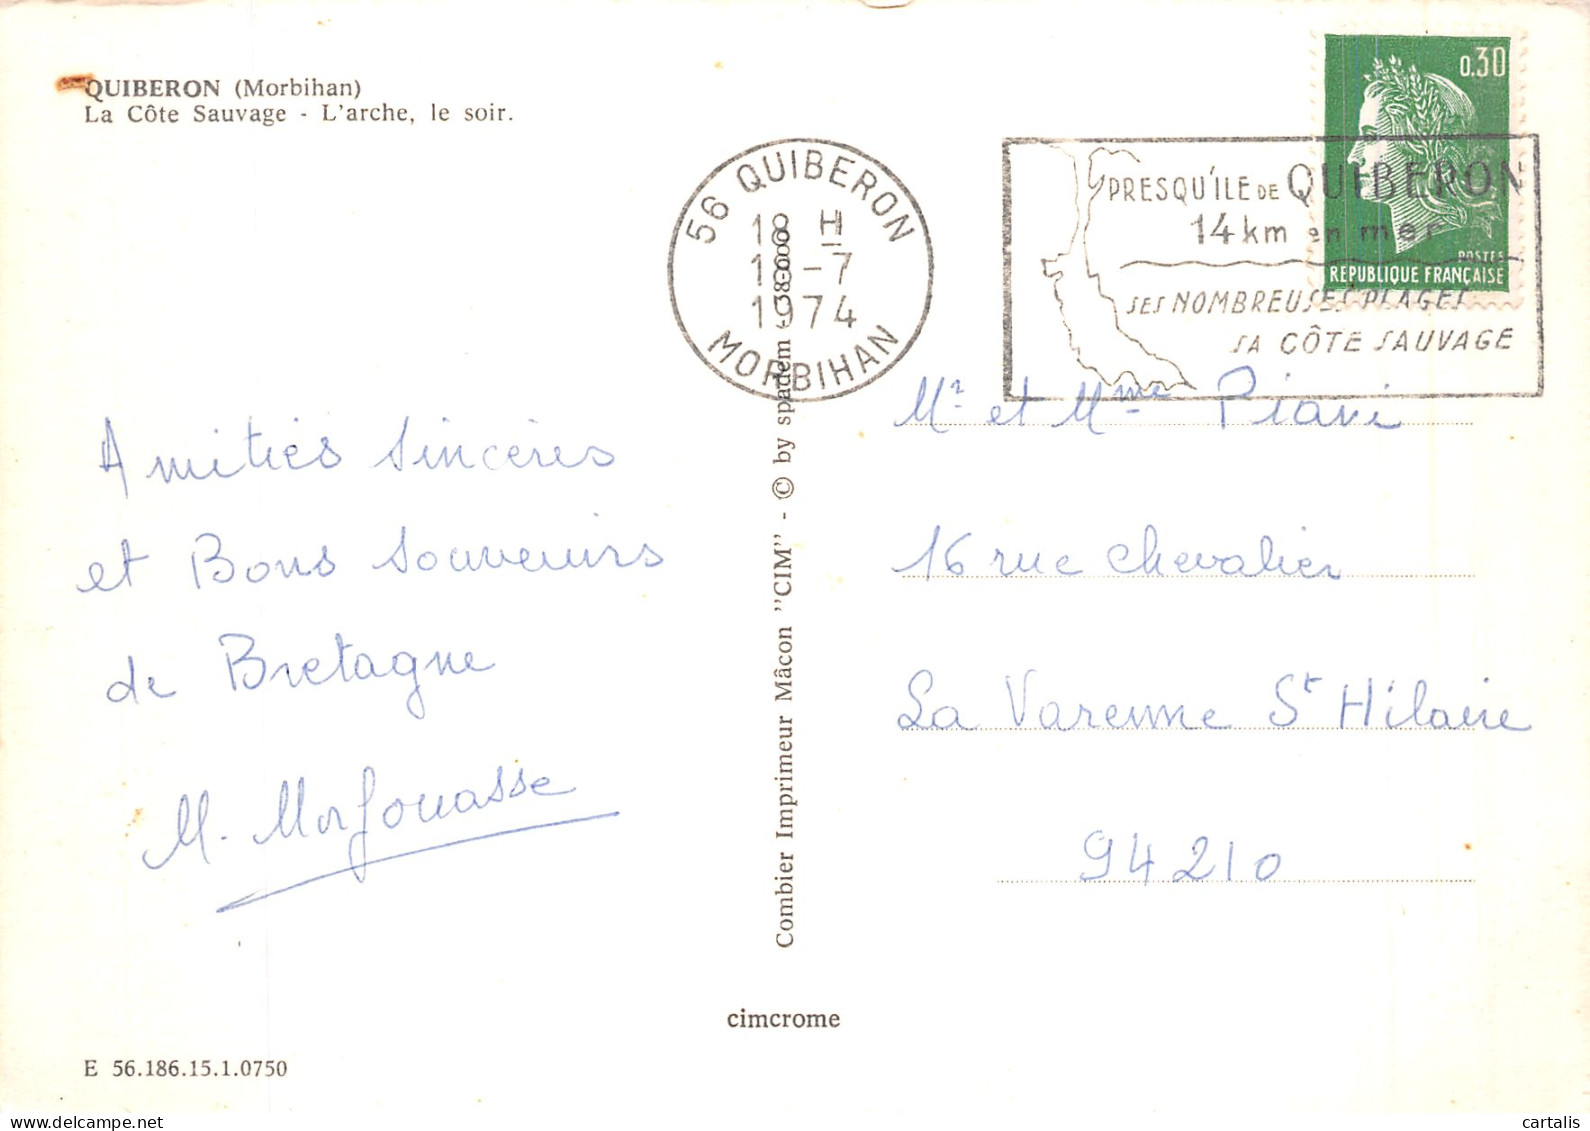 QUIBERON (Morbihan)
La Côte Sauvage - L'arche, le soir.
56 QUIBERON
18 H
1974
MORBIHAN
PRESQU'ILE DE QUIBERON
14 km en mer
SES NOMBREUSES PLAGES
SA CÔTE SAUVAGE
0,30
POSTES
REPUBLIQUE FRANÇAISE
Amitiés sincères
et Bons souvenirs
de Bretagne
M. Morfouasse
Mr et Mme Piani
16 rue Chevalier
La Varenne St Hilaire
94210
Combier Imprimeur Mâcon "CIM" - © by spadem
cimcrome
E 56.186.15.1.0750
cartalis